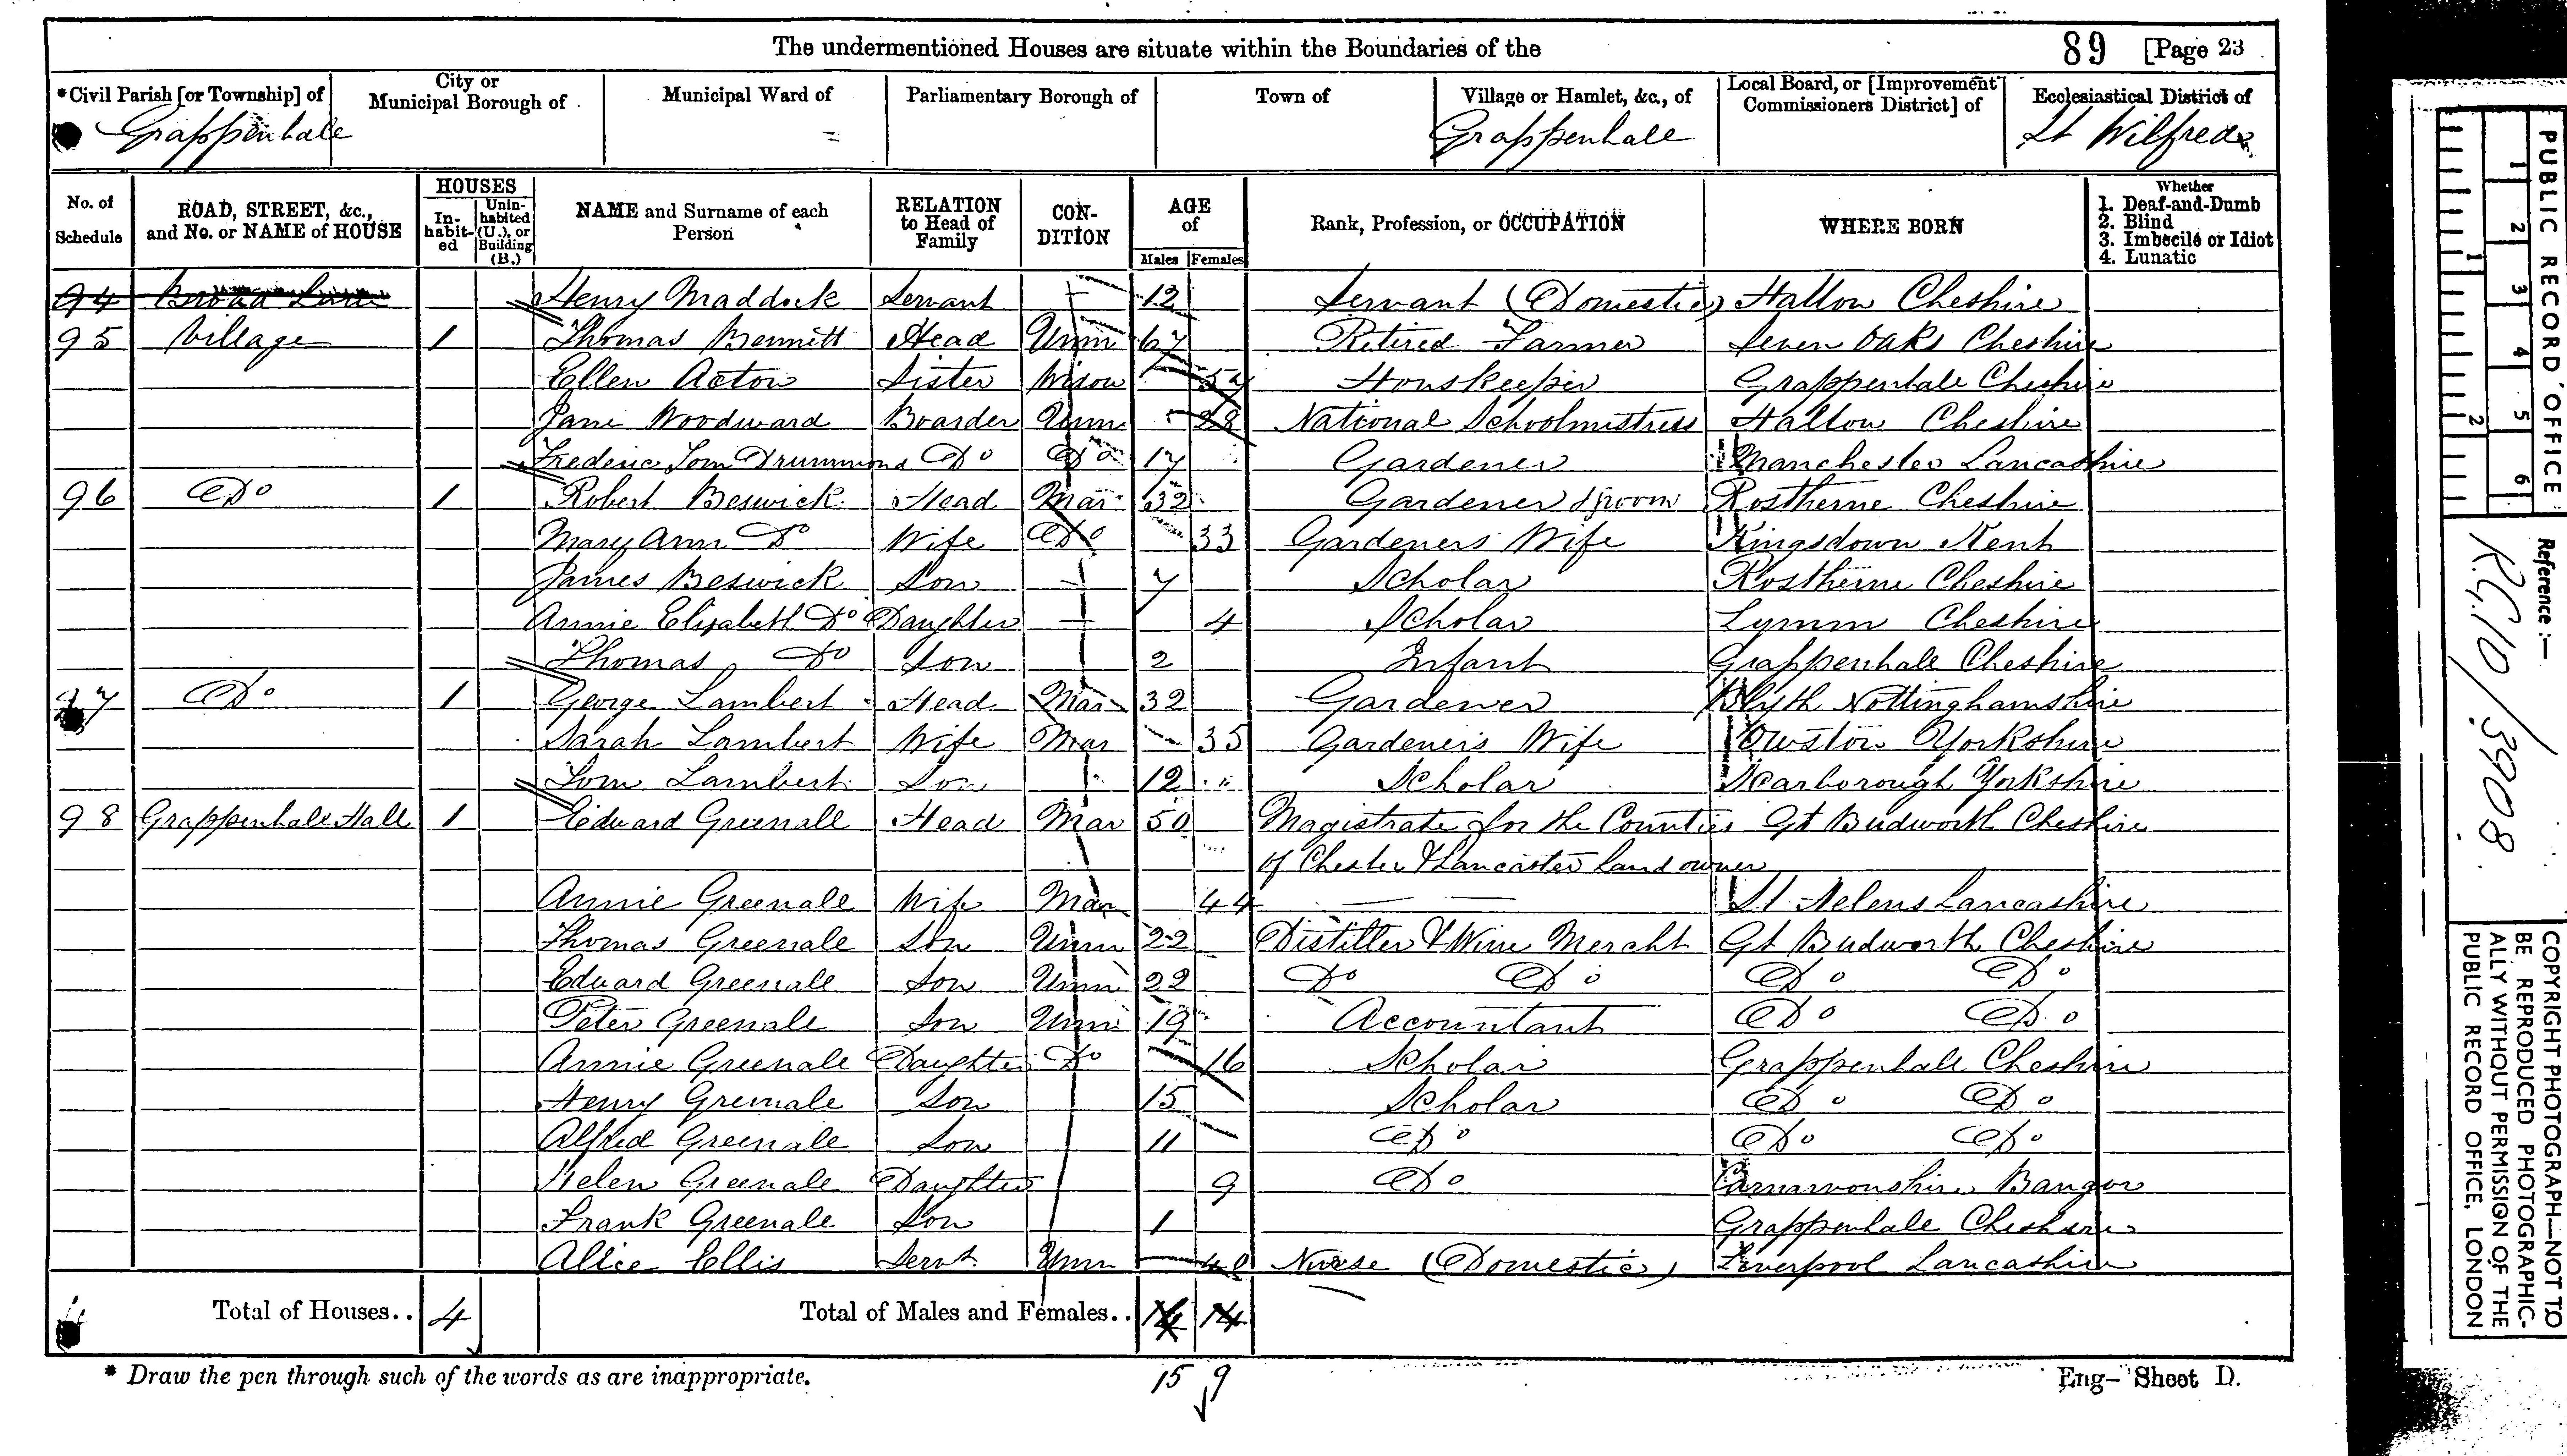 The undermentioned Houses are situate within the Boundaries of the
89 [Page 23
*Civil Parish [or Township] of
Grappenhale
City or Municipal Borough of
Municipal Ward of
Parliamentary Borough of
Town of
Village or Hamlet, &c., of
Grappenhale
Local Board, or [Improvement Commissioners District] of
Ecclesiastical District of
St Wilfreds
No. of Schedule
ROAD, STREET, &c., and No. or NAME of HOUSE
HOUSES
In-habit-ed
Unin-habited (U.), or Building (B.)
NAME and Surname of each Person
RELATION to Head of Family
CON-DITION
AGE of
Males Females
Rank, Profession, or OCCUPATION
WHERE BORN
Whether
1. Deaf-and-Dumb
2. Blind
3. Imbecile or Idiot
4. Lunatic
94 Broad Lane Henry Maddock Servant 12 Servant (Domestic) Hallow Cheshire
95 Village 1 Thomas Bennett Head Unm 67 Retired Farmer Seven Oaks Cheshire
Ellen Acton Sister Widow 54 Houskeeper Grappenhale Cheshire
Jane Woodward Boarder Unm 28 National Schoolmistress Hallow Cheshire
Frederic Tom Drummond Do Do 17 Gardener Manchester Lancashire
96 Do 1 Robert Beswick Head Mar 32 Gardener & groom Rostherne Cheshire
Mary Ann Do Wife Do 33 Gardeners Wife Kingsdown Kent
James Beswick Son 7 Scholar Rostherne Cheshire
Annie Elizabeth Do Daughter 4 Scholar Lymm Cheshire
Thomas Do Son 2 Infant Grappenhale Cheshire
97 Do 1 George Lambert Head Mar 32 Gardener Blyth Nottinghamshire
Sarah Lambert Wife Mar 35 Gardeners Wife Owston Yorkshire
Tom Lambert Son 12 Scholar Scarborough Yorkshire
98 Grappenhale Hall 1 Edward Greenall Head Mar 50 Magistrate for the Counties Gt Budworth Cheshire
of Chester & Lancaster Land owner
Annie Greenale Wife Mar 44 St Helens Lancashire
Thomas Greenale Son Unm 22 Distiller & Wine Mercht Gt Budworth Cheshire
Edward Greenale Son Unm 22 Do Do Do Do
Peter Greenale Son Unm 19 Accountant Do Do
Annie Greenale Daughter Do 16 Scholar Grappenhale Cheshire
Henry Greenale Son 15 Scholar Do Do
Alfred Greenale Son 11 Do Do Do
Helen Greenale Daughter 9 Do Carnarvonshire Bangor
Frank Greenale Son 1 Grappenhale Cheshire
Alice Ellis Servt Unm 40 Nurse (Domestic) Liverpool Lancashire
Total of Houses.. 4
Total of Males and Females.. 14 14
15 9
* Draw the pen through such of the words as are inappropriate.
Eng- Sheet D.
PUBLIC RECORD OFFICE
1 2 3 4 5 6
1 2
Reference :-
R.G. 10/3908
COPYRIGHT PHOTOGRAPH—NOT TO
BE REPRODUCED PHOTOGRAPHIC-
ALLY WITHOUT PERMISSION OF THE
PUBLIC RECORD OFFICE, LONDON